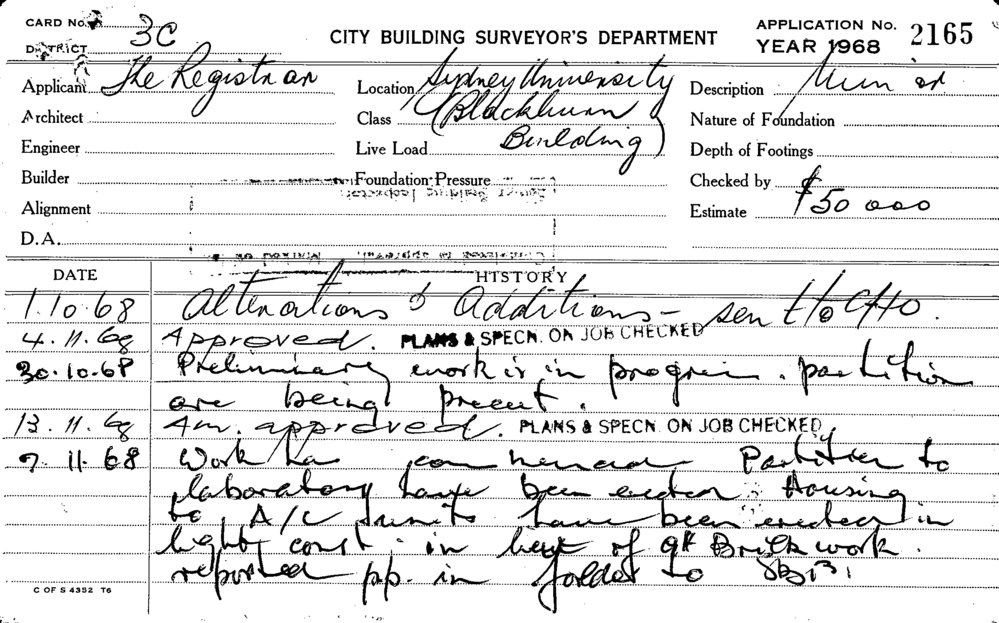 CARD No. 3C
DISTRICT
CITY BUILDING SURVEYOR'S DEPARTMENT
APPLICATION No. 2165
YEAR 1968
Applicant The Registrar
Location Sydney University
Description
Architect
Class (Blackburn
Nature of Foundation
Engineer
Live Load Building)
Depth of Footings
Builder
Foundation Pressure
Checked by
Alignment
Estimate $50 000
D.A.
DATE HISTORY
1.10.68 Alterations & Additions - sent to
4.11.68 Approved. PLANS & SPECN. ON JOB CHECKED
30.10.68 Preliminary work is in progress. partition
are being
13.11.68 Am. approved. PLANS & SPECN. ON JOB CHECKED
7.11.68 Work has commenced Partition to
laboratory have been erected. Housing
to A/C units have been erected in
light const. in of 9" Brickwork.
reported pp. in folder to
C OF S 4352 T6